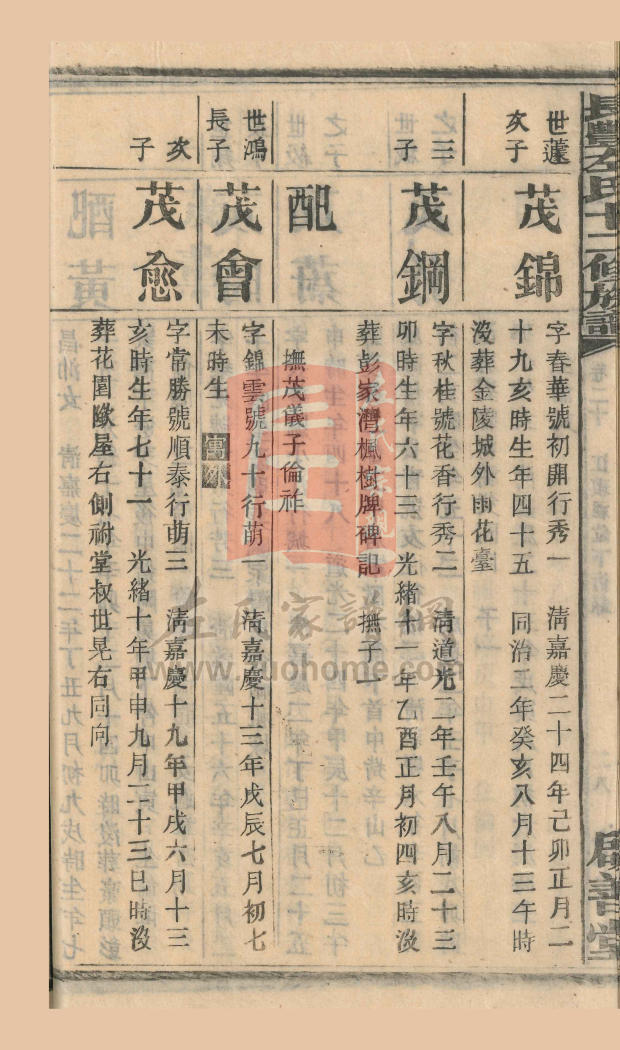 長豐左氏十二修族譜
啟善堂
世蓮
次子
茂錦
字春華號初開行秀一 清嘉慶二十四年己卯正月二
十九亥時生年四十五 同治二年癸亥八月十三午時
沒葬金陵城外雨花臺
之三
子
茂鋼
字秋桂號花香行秀二 清道光二年壬午八月二十三
卯時生年六十三 光緒十一年乙酉正月初四亥時沒
葬彭家灣楓樹牌碑記 撫子一
配
撫茂儀子倫祚
世鴻
長子
茂會
字錦雲號九十行萌一 清嘉慶十三年戊辰七月初七
未時生
次
子
茂愈
字常勝號順泰行萌三 清嘉慶十九年甲戌六月十三
亥時生年七十一 光緒十年甲申九月二十三巳時沒
葬花園墩屋右側祔堂叔世晃右同向
左氏家譜網
www.zuohome.com